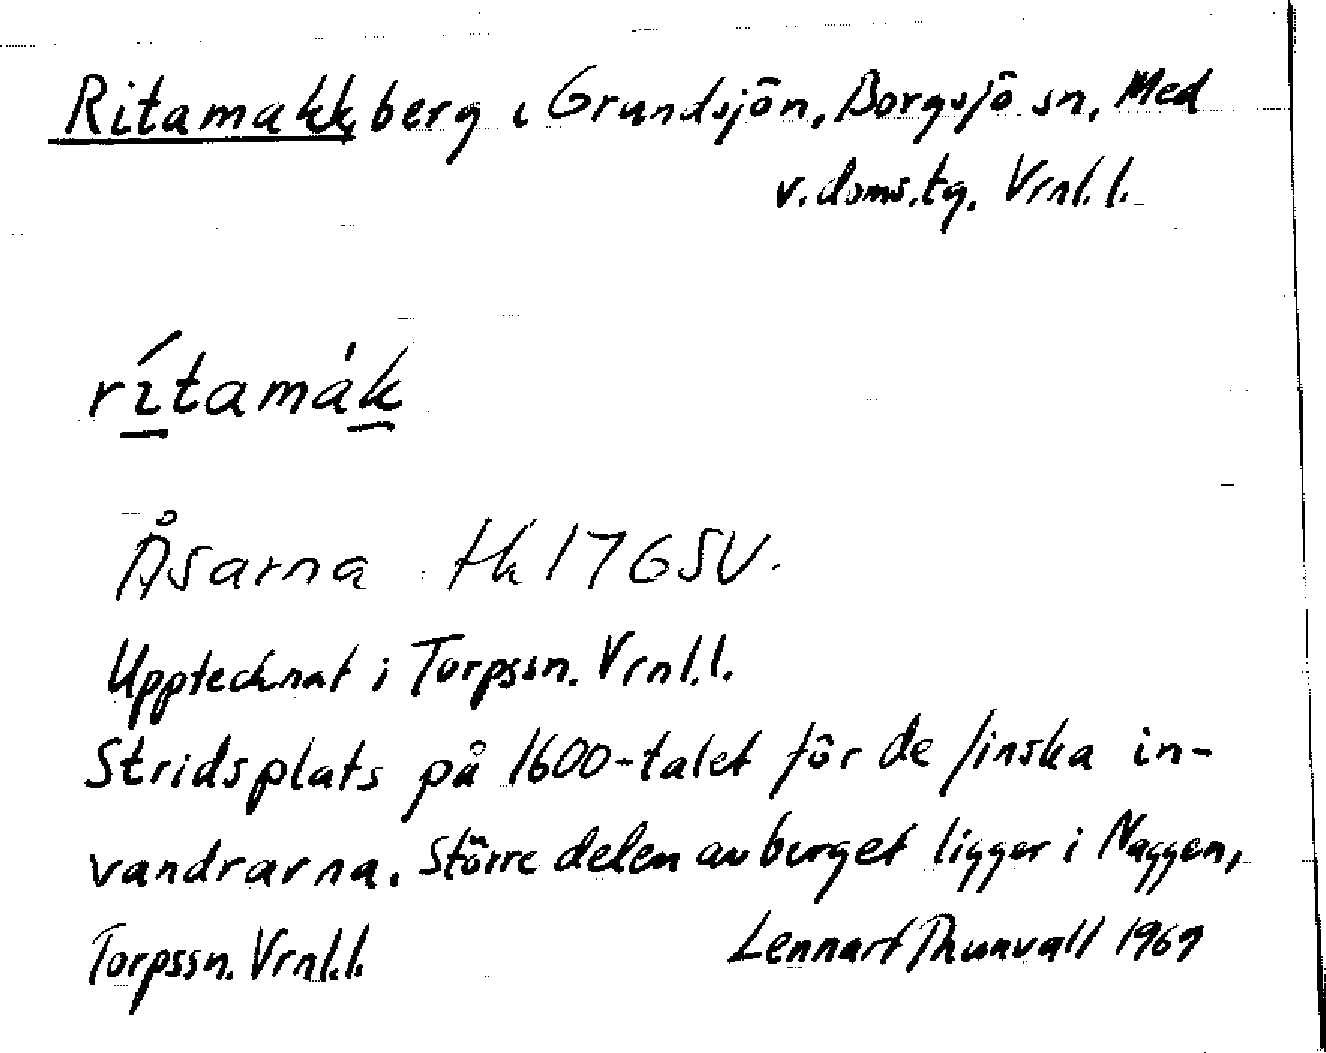 Ritamakk, berg i Grundsjön, Borgsjö sn, Med
v. doms. tg. Vrnl.l.
rítamák
Åsarna tk 17G SV.
Upptecknat i Torpssn. Vrnl.l.
Stridsplats på 1600-talet för de finska in-
vandrarna. Större delen av berget ligger i Naggen,
Torpssn. Vrnl.l. Lennart Thunvall 1969